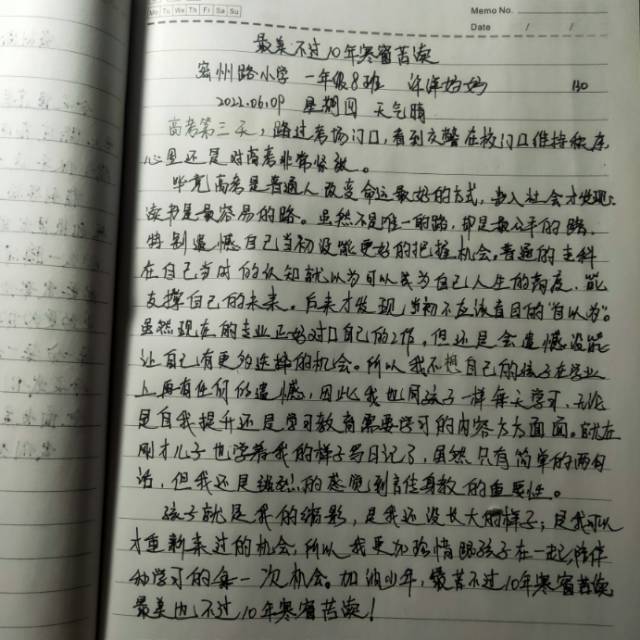 Mo Tu We Th Fr Sa Su
Memo No.
Date / /
最美不过10年寒窗苦读
密州路小学 一年级8班 许泽妈妈 130
2022.06.09 星期四 天气晴
高考第三天，路过考场门口，看到交警在校门口维持秩序
心里还是对高考非常紧张。
毕竟高考是普通人改变命运最好的方式，步入社会才发现：
读书是最容易的路。虽然不是唯一的路，却是最公平的路，
特别遗憾自己当初没能更好的把握机会。普通的主科
在自己当时的认知就以为可以成为自己人生的高度，能
支撑自己的未来。后来才发现，当初不应该盲目的"自以为"。
虽然现在的专业正好对口自己的工作，但还是会遗憾没能
让自己有更多选择的机会。所以我不想自己的孩子在学业
上再有任何的遗憾，因此我也同孩子一样每天学习，无论
是自我提升还是学习教育需要学习的内容方方面面。就在
刚才儿子也学着我的样子写日记了，虽然只有简单的两句
话，但我还是强烈的感觉到言传身教的重要性。
孩子就是我的缩影，是我还没长大的样子；是我可以
才重新来过的机会，所以我更加珍惜跟孩子在一起陪伴
和学习的每一次机会。加油少年，最苦不过10年寒窗苦读
最美也不过10年寒窗苦读！